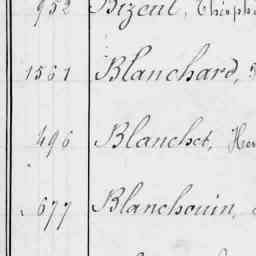 952 Bizeul, Théoph
1561 Blanchard,
496 Blanchet, Hen
677 Blanchouin,